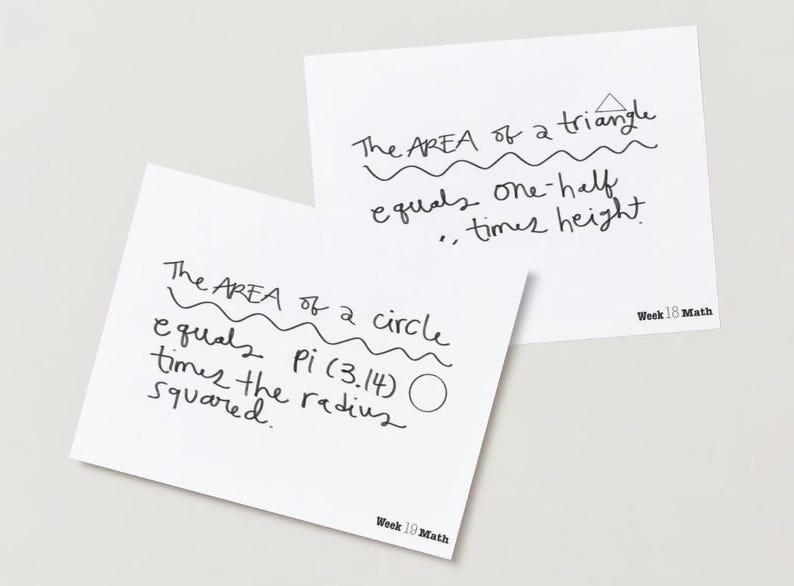 The AREA of a triangle
equals one-half
times height.
Week 18 Math
The AREA of a circle
equals pi (3.14)
times the radius
squared.
Week 19 Math